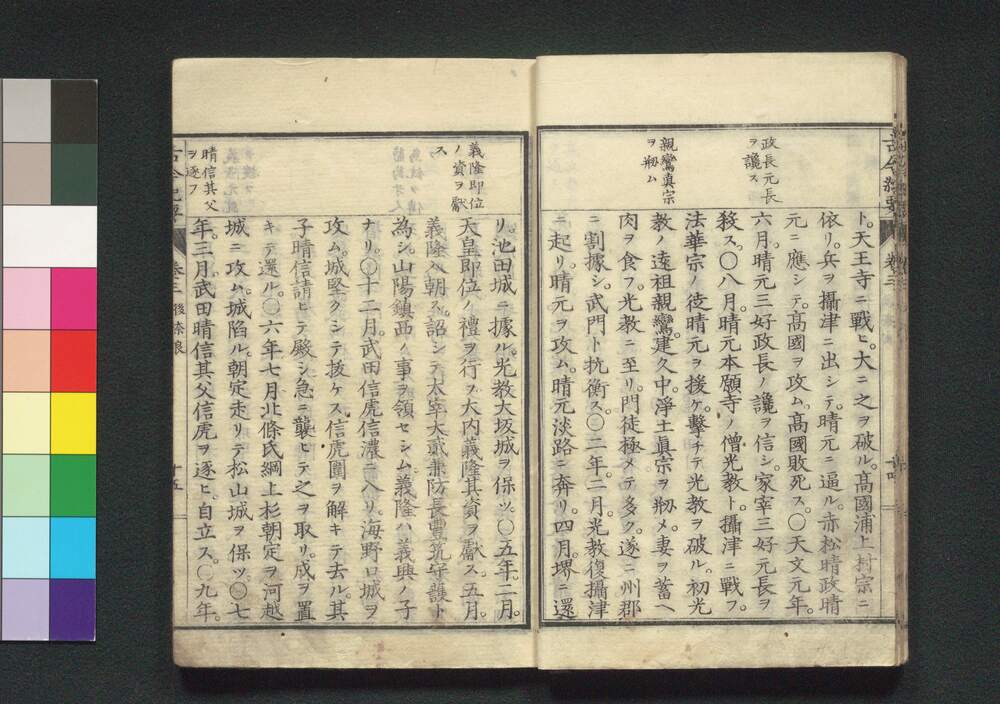 政長元長
ヲ讒ス
親鸞真宗
ヲ剏ム
ト。天王寺ニ戰ヒ。大ニ之ヲ破ル。高國浦上村宗ニ
依リ。兵ヲ攝津ニ出シテ。晴元ニ逼ル。赤松晴政晴
元ニ應シテ。高國ヲ攻ム。高國敗死ス。〇天文元年。
六月。晴元三好政長ノ讒ヲ信シ。家宰三好元長ヲ
殺ス。〇八月。晴元本願寺ノ僧光教ト。攝津ニ戰フ。
法華宗ノ徒晴元ヲ援ケ。擊チテ光教ヲ破ル。初光
教ノ遠祖親鸞。建久中。淨土眞宗ヲ剏メ。妻ヲ蓄ヘ
肉ヲ食フ。光教ニ至リ。門徒極メテ多ク。遂ニ州郡
ニ割據シ。武門ト抗衡ス。〇二年。二月。光教復攝津
ニ起リ。晴元ヲ攻ム。晴元淡路ニ奔リ。四月。堺ニ還
義隆即位
ノ資ヲ獻
ス
晴信其父
ヲ逐フ
リ。池田城ニ據ル。光教大坂城ヲ保ツ。〇五年。二月。
天皇即位ノ禮ヲ行フ。大内義隆其資ヲ獻ス。五月。
義隆入朝ス。詔シテ太宰大貳兼防長豊筑守護ト
為シ。山陽鎮西ノ事ヲ領セシム。義隆ハ義興ノ子
ナリ。〇十二月。武田信虎信濃ニ入リ。海野口城ヲ
攻ム。城堅クシテ拔ケス。信虎圍ヲ解キテ去ル。其
子晴信請ヒテ殿シ。急ニ襲ヒテ之ヲ取リ。戍ヲ置
キテ還ル。〇六年七月北條氏綱上杉朝定ヲ河越
城ニ攻ム。城陥ル。朝定走リテ松山城ヲ保ツ。〇七
年。三月。武田晴信其父信虎ヲ逐ヒ。自立ス。〇九年。
卷三
後奈良
十五